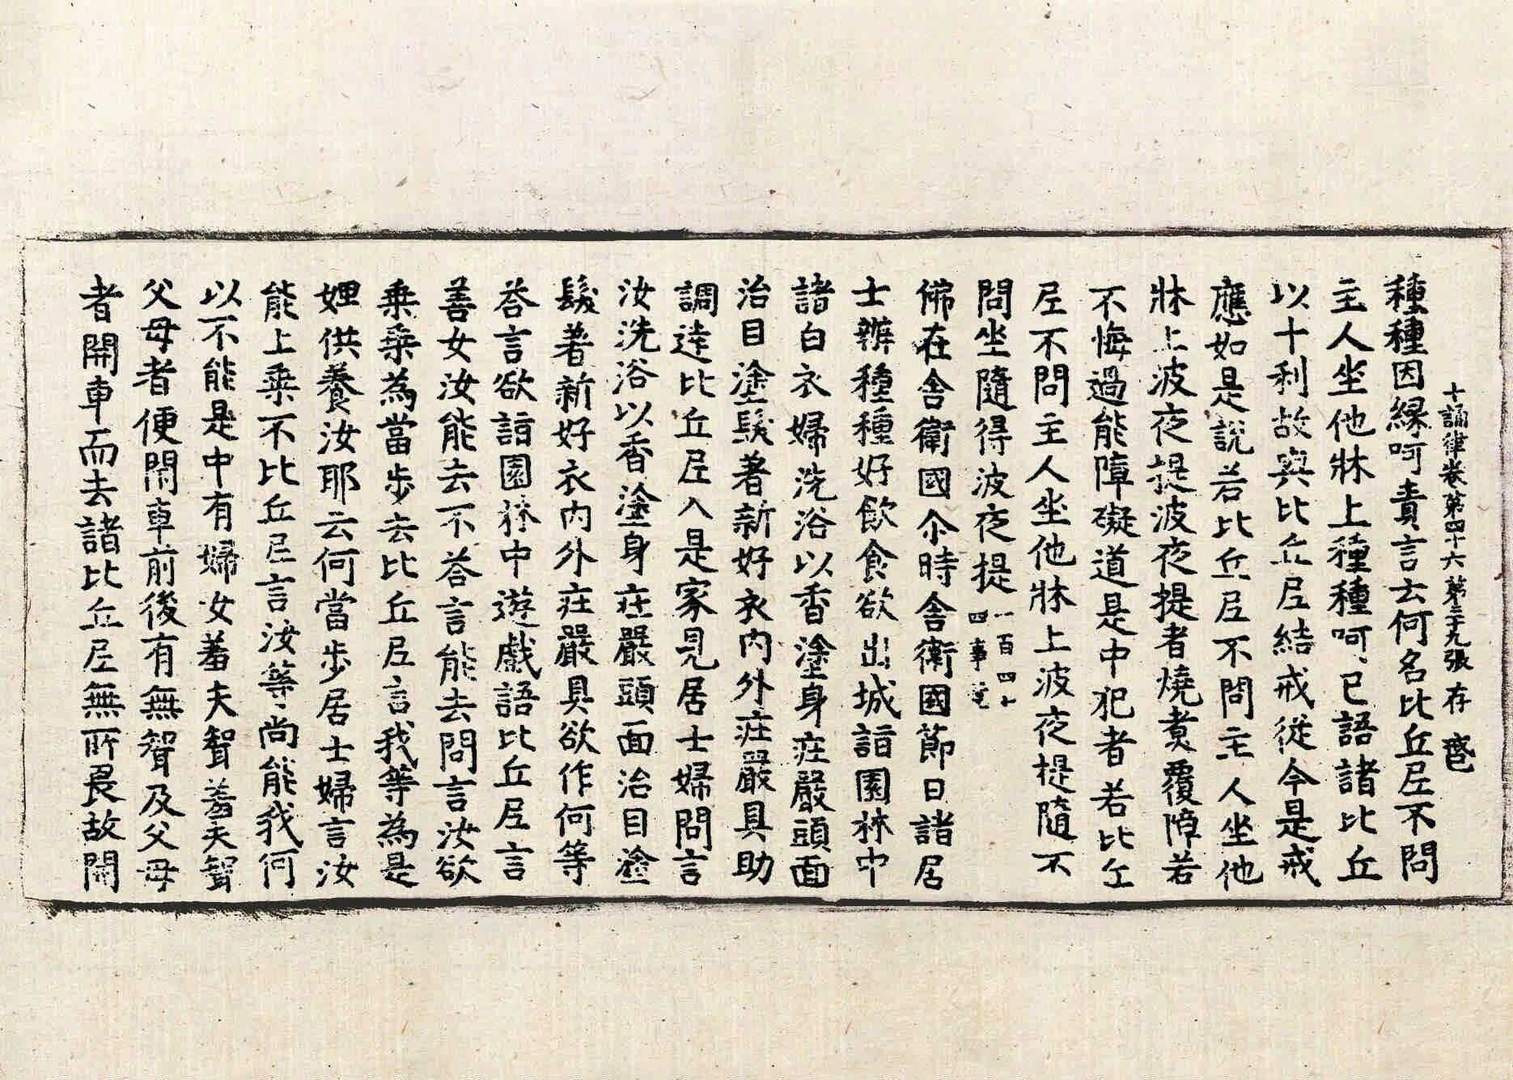 種種因縁呵責言云何名比丘尼不問
十誦律卷第四十六 第三十九張 存
主人坐他牀上種種呵、已語諸比丘
以十利故與比丘尼結戒從今是戒
應如是說若比丘尼不問主人坐他
牀上波夜提波夜提者燒煑覆障若
不悔過能障礙道是中犯者若比丘
尼不問主人坐他牀上波夜提隨不
問坐隨得波夜提 一百四十四事竟
佛在舍衛國尒時舍衛國節日諸居
士辦種種好飲食欲出城詣園林中
諸白衣婦洗浴以香塗身庄嚴頭面
治目塗髮著新好衣內外庄嚴具助
調達比丘尼入是家見居士婦問言
汝洗浴以香塗身庄嚴頭面治目塗
髮著新好衣內外庄嚴具欲作何等
荅言欲詣園林中遊戲語比丘尼言
善女汝能去不荅言能去問言汝欲
乗乗為當步去比丘尼言我等為是
婬供養汝耶云何當步居士婦言汝
能上乗不比丘尼言汝等尚能我何
以不能是中有婦女羞夫聟羞夫聟
父母者便閇車前後有無聟及父母
者開車而去諸比丘尼無所畏故開